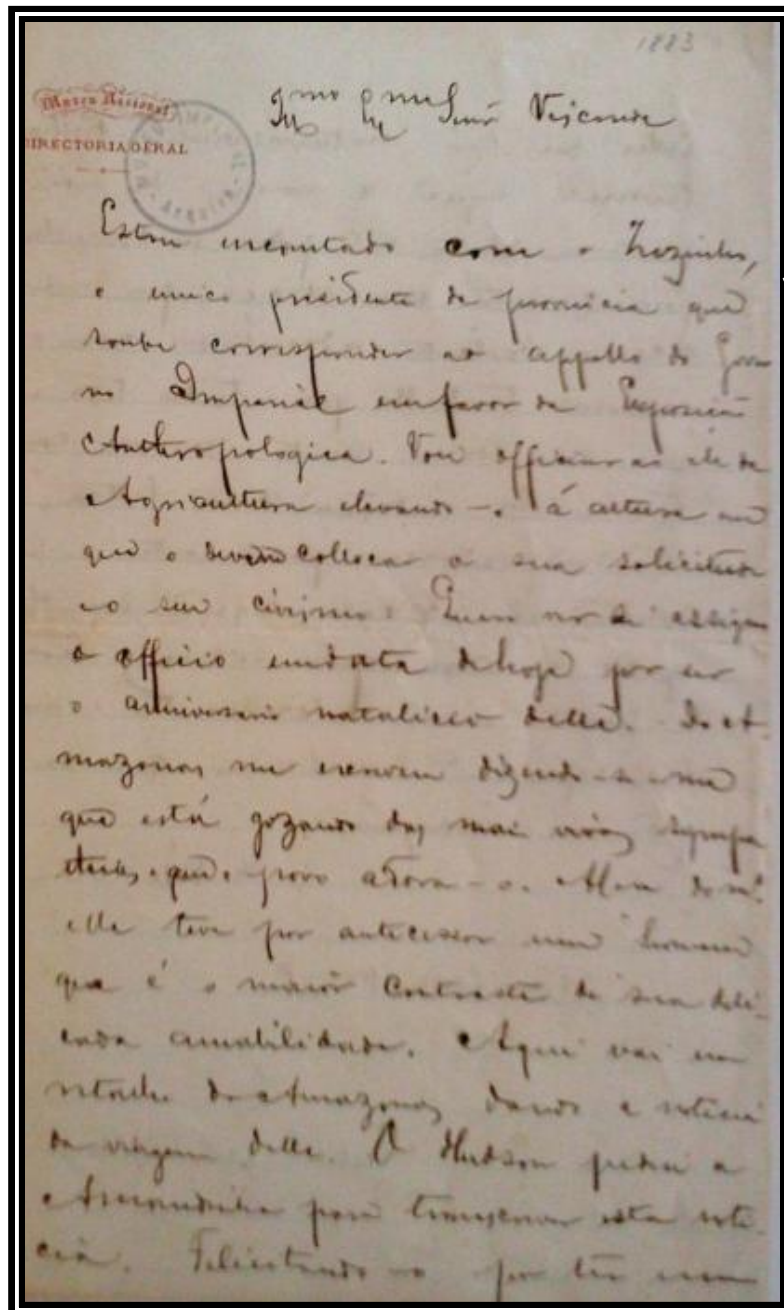 1883
Museu Nacional
DIRECTORIA GERAL
Illmo Exmo Senr Visconde
Estou encantado com o Zozinho,
o unico presidente de provincia que
soube corresponder ao appello do Gover
no Imperial em favor da Exposição
Anthropologica. Vou officiar ao de
Agricultura elevando-o á altura em
que o devem collocar a sua solicitude
e o seu civismo. Quero ver se assigno
o officio em data de hoje por ser
o anniversario natalicio delle. Do A-
mazonas me escrevem dizendo-se-me
que está gozando das mais vivas sympa
thias, e que o povo adora-o. Alem do mais
elle teve por antecessor um homem
que é o maior contraste de sua deli-
cada amabilidade. Aqui vai um
retalho do Amazonas dando a noticia
da viagem delle. O Hudson pediu a
para transcrever esta noti-
cia. Felicitando-o por ter um